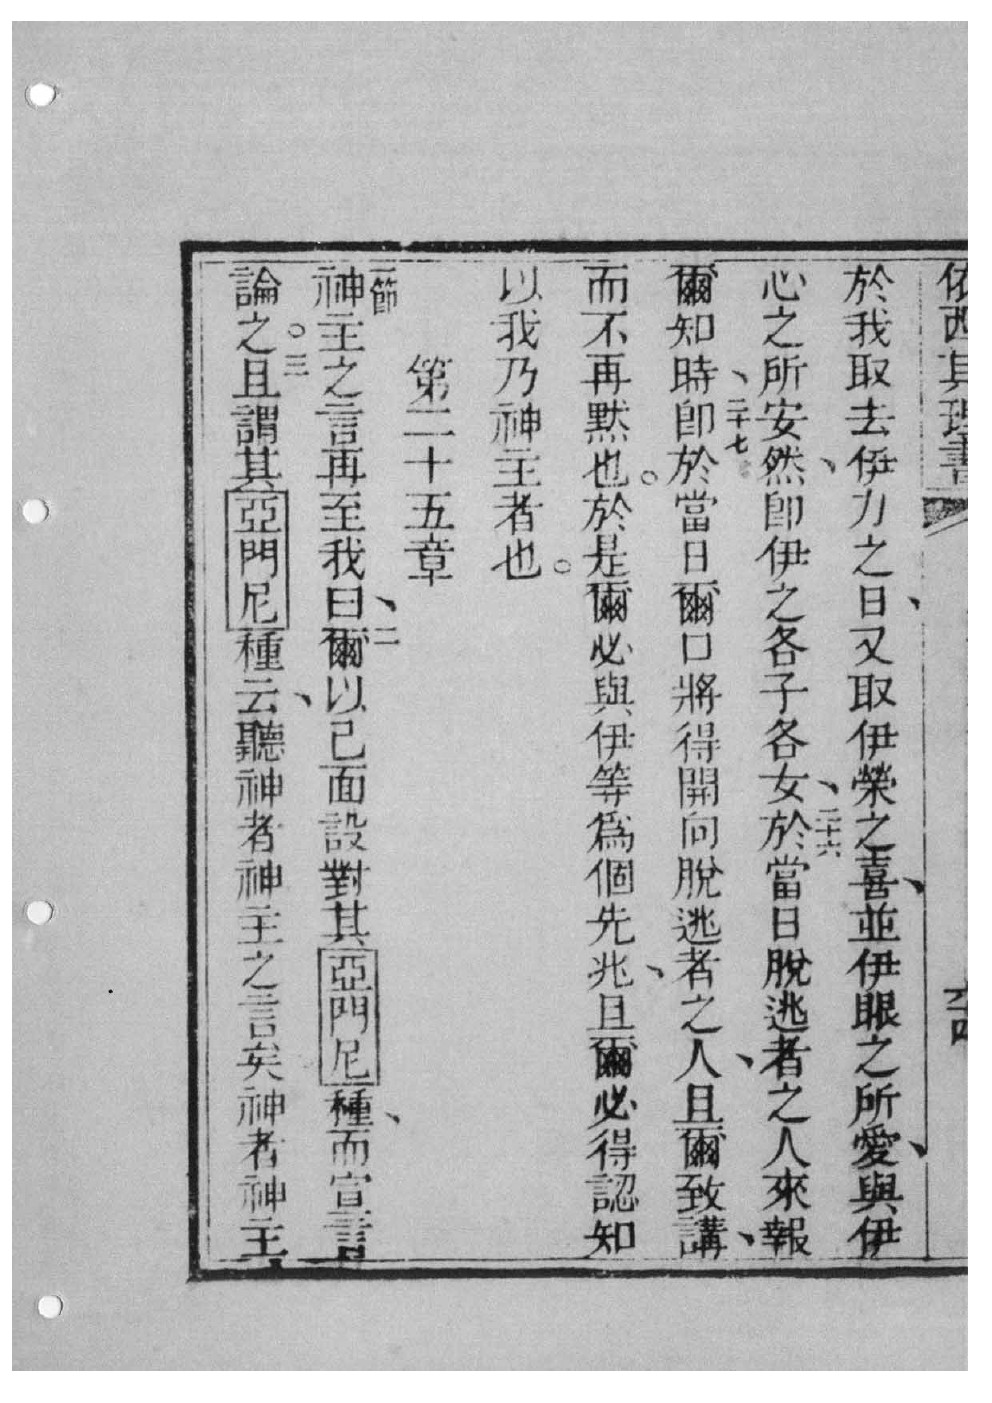 依西其理書
於我取去伊力之日、又取伊榮之喜、並伊眼之所愛、與伊
心之所安然、卽伊之各子各女、二十六於當日脫逃者之人來報
爾知時、二十七卽於當日爾口將得開向脫逃者之人、且爾致講、
而不再默也。於是爾必與伊等爲個先兆、且爾必得認知
以我乃神主者也。
第二十五章
一節神主之言再至我曰、二爾以己面設對其亞門尼種、而宣言
論之。三且謂其亞門尼種云、聽神者神主之言矣神者神主